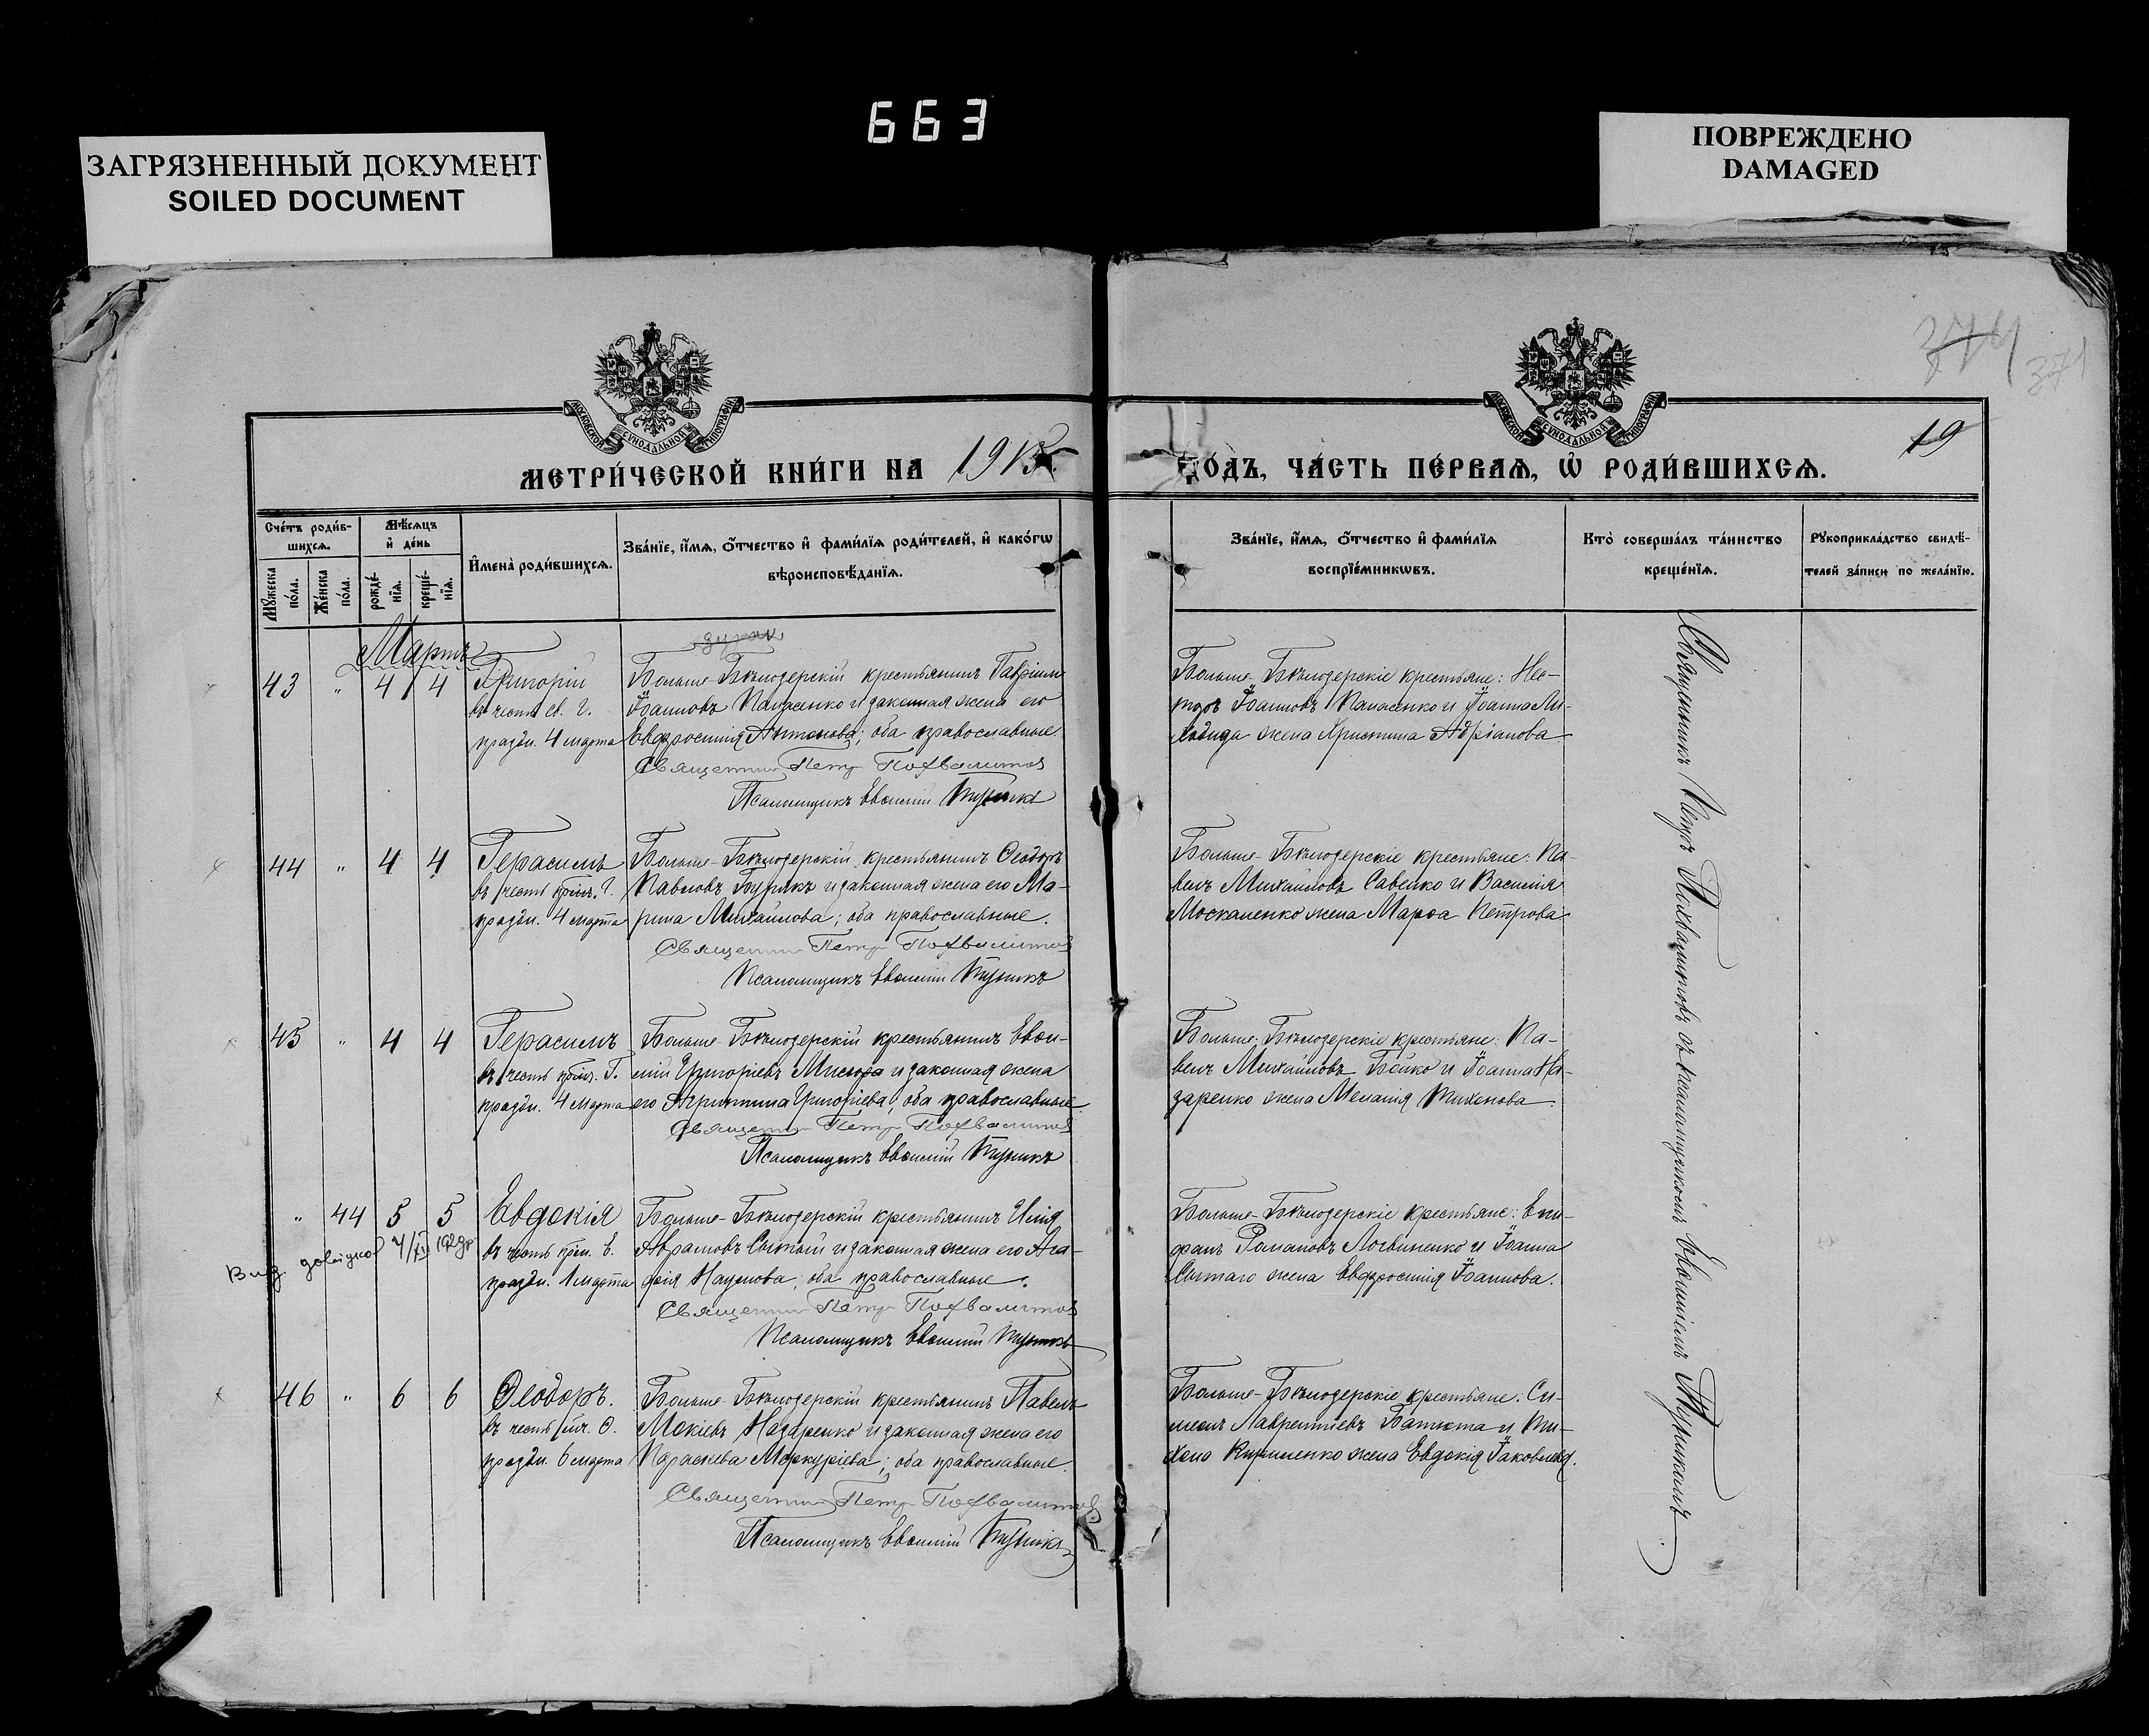 663
ЗАГРЯЗНЕННЫЙ ДОКУМЕНТ
SOILED DOCUMENT
ПОВРЕЖДЕНО
DAMAGED
374
371
МОСКОВСКОЙ СѴНОДАЛЬНОЙ ТИПОГРАФІИ
МОСКОВСКОЙ СѴНОДАЛЬНОЙ ТИПОГРАФІИ
19
МЕТРИ́ЧЕСКОЙ КНИ́ГИ НА 1915
ГО́ДЪ, ЧА́СТЬ ПЕ́РВАѦ, Ѡ҆ РОДИ́ВШИХСѦ.
Сче́тъ роди́вшихсѧ.
Мꙋ́жеска по́ла.
Же́нска по́ла.
Мѣ́сѧцъ и҆ де́нь
рожде́нїѧ.
креще́нїѧ.
И҆мена̀ роди́вшихсѧ.
Зва́нїе, и҆́мѧ, ѻ҆́тчество и҆ фами́лїѧ роди́телей, и҆ како́гѡ
вѣроисповѣ́данїѧ.
Зва́нїе, и҆́мѧ, ѻ҆́тчество и҆ фами́лїѧ
воспрїе́мникѡвъ.
Кто̀ соверша́лъ та́инство
креще́нїѧ.
Рꙋкоприкла́дство свидѣ́-
телей за́писи по жела́нїю.
Мартъ
43 " 4 4 Григорій
въ честь св. Г.
праздн. 4 марта
Больше-Бѣлозерскій крестьянинъ Гавріилъ
Іоанновъ Панасенко и законная жена его
Евфросинія Антонова; оба православные.
Священник Петр Похвалитов
Псаломщикъ Евѳимій Тупикъ
Больше-Бѣлозерскіе крестьяне: Нес-
торъ Іоанновъ Панасенко и Іоанна Ли-
жена Христина Адріанова.
44 " 4 4 Герасимъ
въ честь прпд. Г.
праздн. 4 марта
Больше-Бѣлозерскій крестьянинъ Ѳеодоръ
Павловъ Бурякъ и законная жена его Ма-
рина Михайлова; оба православные.
Священник Петр Похвалитов
Псаломщикъ Евѳимій Тупикъ
Больше-Бѣлозерскіе крестьяне: Па-
велъ Михайловъ Савенко и Василія
Москаленко жена Марѳа Петрова
45 " 4 4 Герасимъ
въ честь прпд. Г.
праздн. 4 марта
Больше-Бѣлозерскій крестьянинъ Евѳи-
мій Григоріевъ Мисюра и законная жена
его Агрипина Григоріева; оба православные.
Священник Петр Похвалитов
Псаломщикъ Евѳимій Тупикъ
Больше-Бѣлозерскіе крестьяне: Па-
велъ Михайловъ Бойко и Іоанна На-
заренко жена Меланія Тихонова.
" 44 5 5 Евдокія
въ честь прпм. Е.
праздн. 1 марта
Вид. довідка 4/XII 192 др
Больше-Бѣлозерскій крестьянинъ Илія
Аврамовъ Сытый и законная жена его Ага-
ѳія Наумова; оба православные.
Священник Петр Похвалитов
Псаломщикъ Евѳимій Тупикъ
Больше-Бѣлозерскіе крестьяне: Епи-
фанъ Романовъ Логвиненко и Іоанна
Сытаго жена Евфросинія Іоаннова.
46 " 6 6 Ѳеодоръ.
въ честь мч. Ѳ.
праздн. 6 марта
Больше-Бѣлозерскій крестьянинъ Павелъ
Мокіевъ Назаренко и законная жена его
Параскева Меркуріева; оба православные.
Священник Петр Похвалитов
Псаломщикъ Евѳимій Тупикъ
Больше-Бѣлозерскіе крестьяне: Си-
меонъ Лаврентіевъ Батюта и Ти-
хона Кириленко жена Евдокія Іаковлева.
Священникъ Петръ Похвалитовъ съ псаломщикомъ Евѳиміемъ Тупикомъ